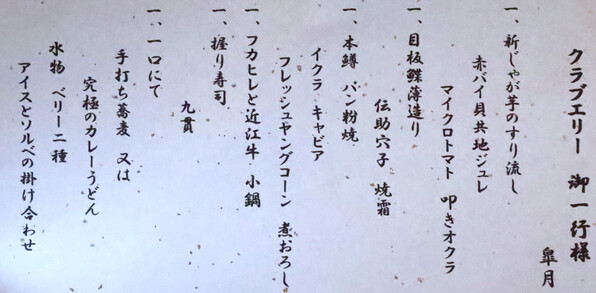 クラブエリー 御一行様
皐月
一、新じゃが芋のすり流し
赤バイ貝共地ジュレ
マイクロトマト 叩きオクラ
一、目板鰈薄造り
伝助穴子 焼霜
一、本鱒 パン粉焼
イクラ キャビア
フレッシュヤングコーン 煮おろし
一、フカヒレと近江牛 小鍋
一、握り寿司
九貫
一、一口にて
手打ち蕎麦 又は
究極のカレーうどん
水物 ベリー二種
アイスとソルベの掛け合わせ